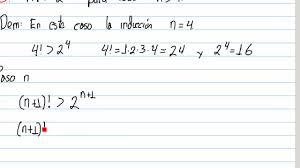 Dem: En este caso la inducción n=4.
4! > 2⁴ 4! = 1·2·3·4 = 24 y 2⁴ = 16
Paso n
(n+1)! > 2ⁿ⁺¹
(n+1)!